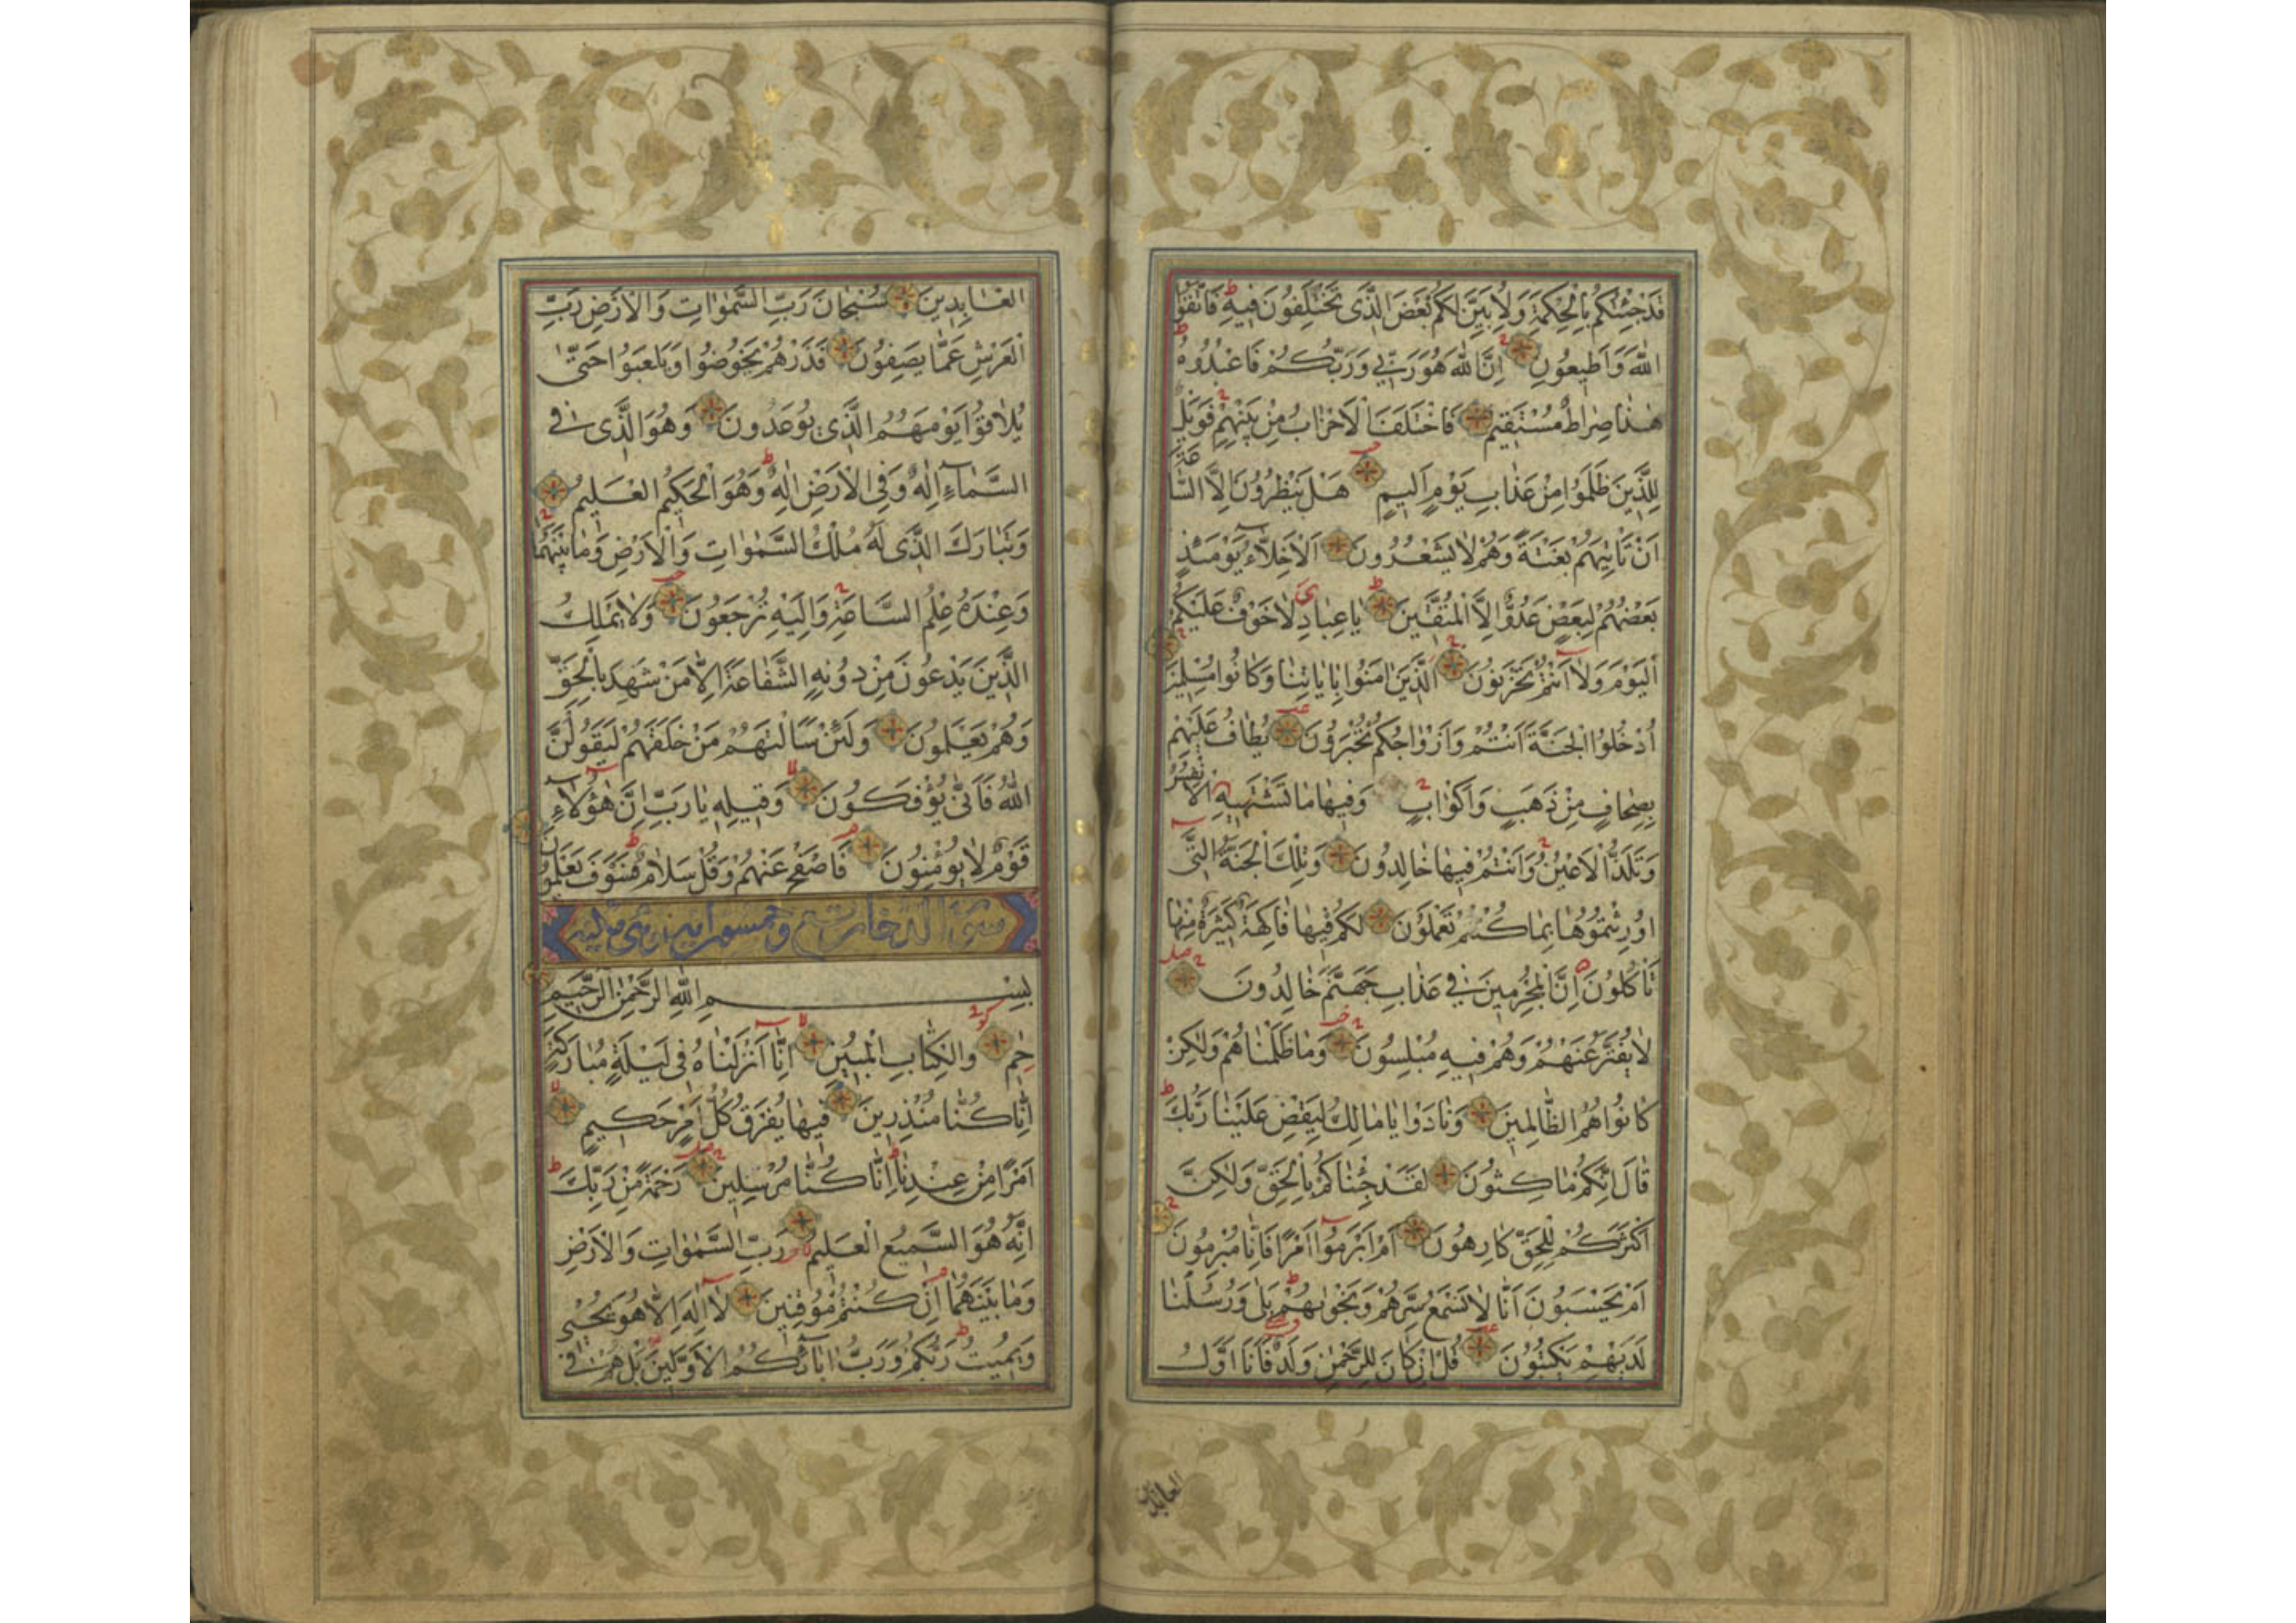 قَدْ جِئْتُكُمْ بِالْحِكْمَةِ وَلِاُبَيِّنَ لَكُمْ بَعْضَ الَّذٖى تَخْتَلِفُونَ فٖيهِ فَاتَّقُوا
اللّٰهَ وَاَطٖيعُونِ اِنَّ اللّٰهَ هُوَ رَبّٖى وَرَبُّكُمْ فَاعْبُدُوهُ
هٰذَا صِرَاطٌ مُسْتَقٖيمٌ فَاخْتَلَفَ الْاَحْزَابُ مِنْ بَيْنِهِمْ فَوَيْلٌ
لِلَّذٖينَ ظَلَمُوا مِنْ عَذَابِ يَوْمٍ اَلٖيمٍ هَلْ يَنْظُرُونَ اِلَّا السَّاعَةَ
اَنْ تَاْتِيَهُمْ بَغْتَةً وَهُمْ لَا يَشْعُرُونَ اَلْاَخِلَّاءُ يَوْمَئِذٍ
بَعْضُهُمْ لِبَعْضٍ عَدُوٌّ اِلَّا الْمُتَّقٖينَ يَا عِبَادِ ى لَا خَوْفٌ عَلَيْكُمُ
الْيَوْمَ وَلَا اَنْتُمْ تَحْزَنُونَ اَلَّذٖينَ اٰمَنُوا بِاٰيَاتِنَا وَكَانُوا مُسْلِمٖينَ
اُدْخُلُوا الْجَنَّةَ اَنْتُمْ وَاَزْوَاجُكُمْ تُحْبَرُونَ يُطَافُ عَلَيْهِمْ
بِصِحَافٍ مِنْ ذَهَبٍ وَاَكْوَابٍ وَفٖيهَا مَا تَشْتَهٖيهِ الْاَنْفُسُ
وَتَلَذُّ الْاَعْيُنُ وَاَنْتُمْ فٖيهَا خَالِدُونَ وَتِلْكَ الْجَنَّةُ الَّتٖى
اُورِثْتُمُوهَا بِمَا كُنْتُمْ تَعْمَلُونَ لَكُمْ فٖيهَا فَاكِهَةٌ كَثٖيرَةٌ مِنْهَا
تَاْكُلُونَ اِنَّ الْمُجْرِمٖينَ فٖى عَذَابِ جَهَنَّمَ خَالِدُونَ
لَا يُفَتَّرُ عَنْهُمْ وَهُمْ فٖيهِ مُبْلِسُونَ وَمَا ظَلَمْنَاهُمْ وَلٰكِنْ
كَانُوا هُمُ الظَّالِمٖينَ وَنَادَوْا يَا مَالِكُ لِيَقْضِ عَلَيْنَا رَبُّكَ
قَالَ اِنَّكُمْ مَاكِثُونَ لَقَدْ جِئْنَاكُمْ بِالْحَقِّ وَلٰكِنَّ
اَكْثَرَكُمْ لِلْحَقِّ كَارِهُونَ اَمْ اَبْرَمُوا اَمْرًا فَاِنَّا مُبْرِمُونَ
اَمْ يَحْسَبُونَ اَنَّا لَا نَسْمَعُ سِرَّهُمْ وَنَجْوٰيهُمْ بَلٰى وَرُسُلُنَا
لَدَيْهِمْ يَكْتُبُونَ قُلْ اِنْ كَانَ لِلرَّحْمٰنِ وَلَدٌ فَاَنَا اَوَّلُ
العابدين
الْعَابِدٖينَ سُبْحَانَ رَبِّ السَّمٰوَاتِ وَالْاَرْضِ رَبِّ
الْعَرْشِ عَمَّا يَصِفُونَ فَذَرْهُمْ يَخُوضُوا وَيَلْعَبُوا حَتّٰى
يُلَاقُوا يَوْمَهُمُ الَّذٖى يُوعَدُونَ وَهُوَ الَّذٖى فِى
السَّمَاءِ اِلٰهٌ وَفِى الْاَرْضِ اِلٰهٌ وَهُوَ الْحَكٖيمُ الْعَلٖيمُ
وَتَبَارَكَ الَّذٖى لَهُ مُلْكُ السَّمٰوَاتِ وَالْاَرْضِ وَمَا بَيْنَهُمَا
وَعِنْدَهُ عِلْمُ السَّاعَةِ وَاِلَيْهِ تُرْجَعُونَ وَلَا يَمْلِكُ
الَّذٖينَ يَدْعُونَ مِنْ دُونِهِ الشَّفَاعَةَ اِلَّا مَنْ شَهِدَ بِالْحَقِّ
وَهُمْ يَعْلَمُونَ وَلَئِنْ سَاَلْتَهُمْ مَنْ خَلَقَهُمْ لَيَقُولُنَّ
اللّٰهُ فَاَنّٰى يُؤْفَكُونَ وَقٖيلِهٖ يَا رَبِّ اِنَّ هٰؤُلَاءِ
قَوْمٌ لَا يُؤْمِنُونَ فَاصْفَحْ عَنْهُمْ وَقُلْ سَلَامٌ فَسَوْفَ يَعْلَمُونَ
سورة الدخان تسع وخمسون اية وهى مكية
بِسْمِ اللّٰهِ الرَّحْمٰنِ الرَّحٖيمِ
حٰم وَالْكِتَابِ الْمُبٖينِ اِنَّا اَنْزَلْنَاهُ فٖى لَيْلَةٍ مُبَارَكَةٍ
اِنَّا كُنَّا مُنْذِرٖينَ فٖيهَا يُفْرَقُ كُلُّ اَمْرٍ حَكٖيمٍ
اَمْرًا مِنْ عِنْدِنَا اِنَّا كُنَّا مُرْسِلٖينَ رَحْمَةً مِنْ رَبِّكَ
اِنَّهُ هُوَ السَّمٖيعُ الْعَلٖيمُ رَبِّ السَّمٰوَاتِ وَالْاَرْضِ
وَمَا بَيْنَهُمَا اِنْ كُنْتُمْ مُوقِنٖينَ لَا اِلٰهَ اِلَّا هُوَ يُحْيٖى
وَيُمٖيتُ رَبُّكُمْ وَرَبُّ اٰبَائِكُمُ الْاَوَّلٖينَ بَلْ هُمْ فٖى